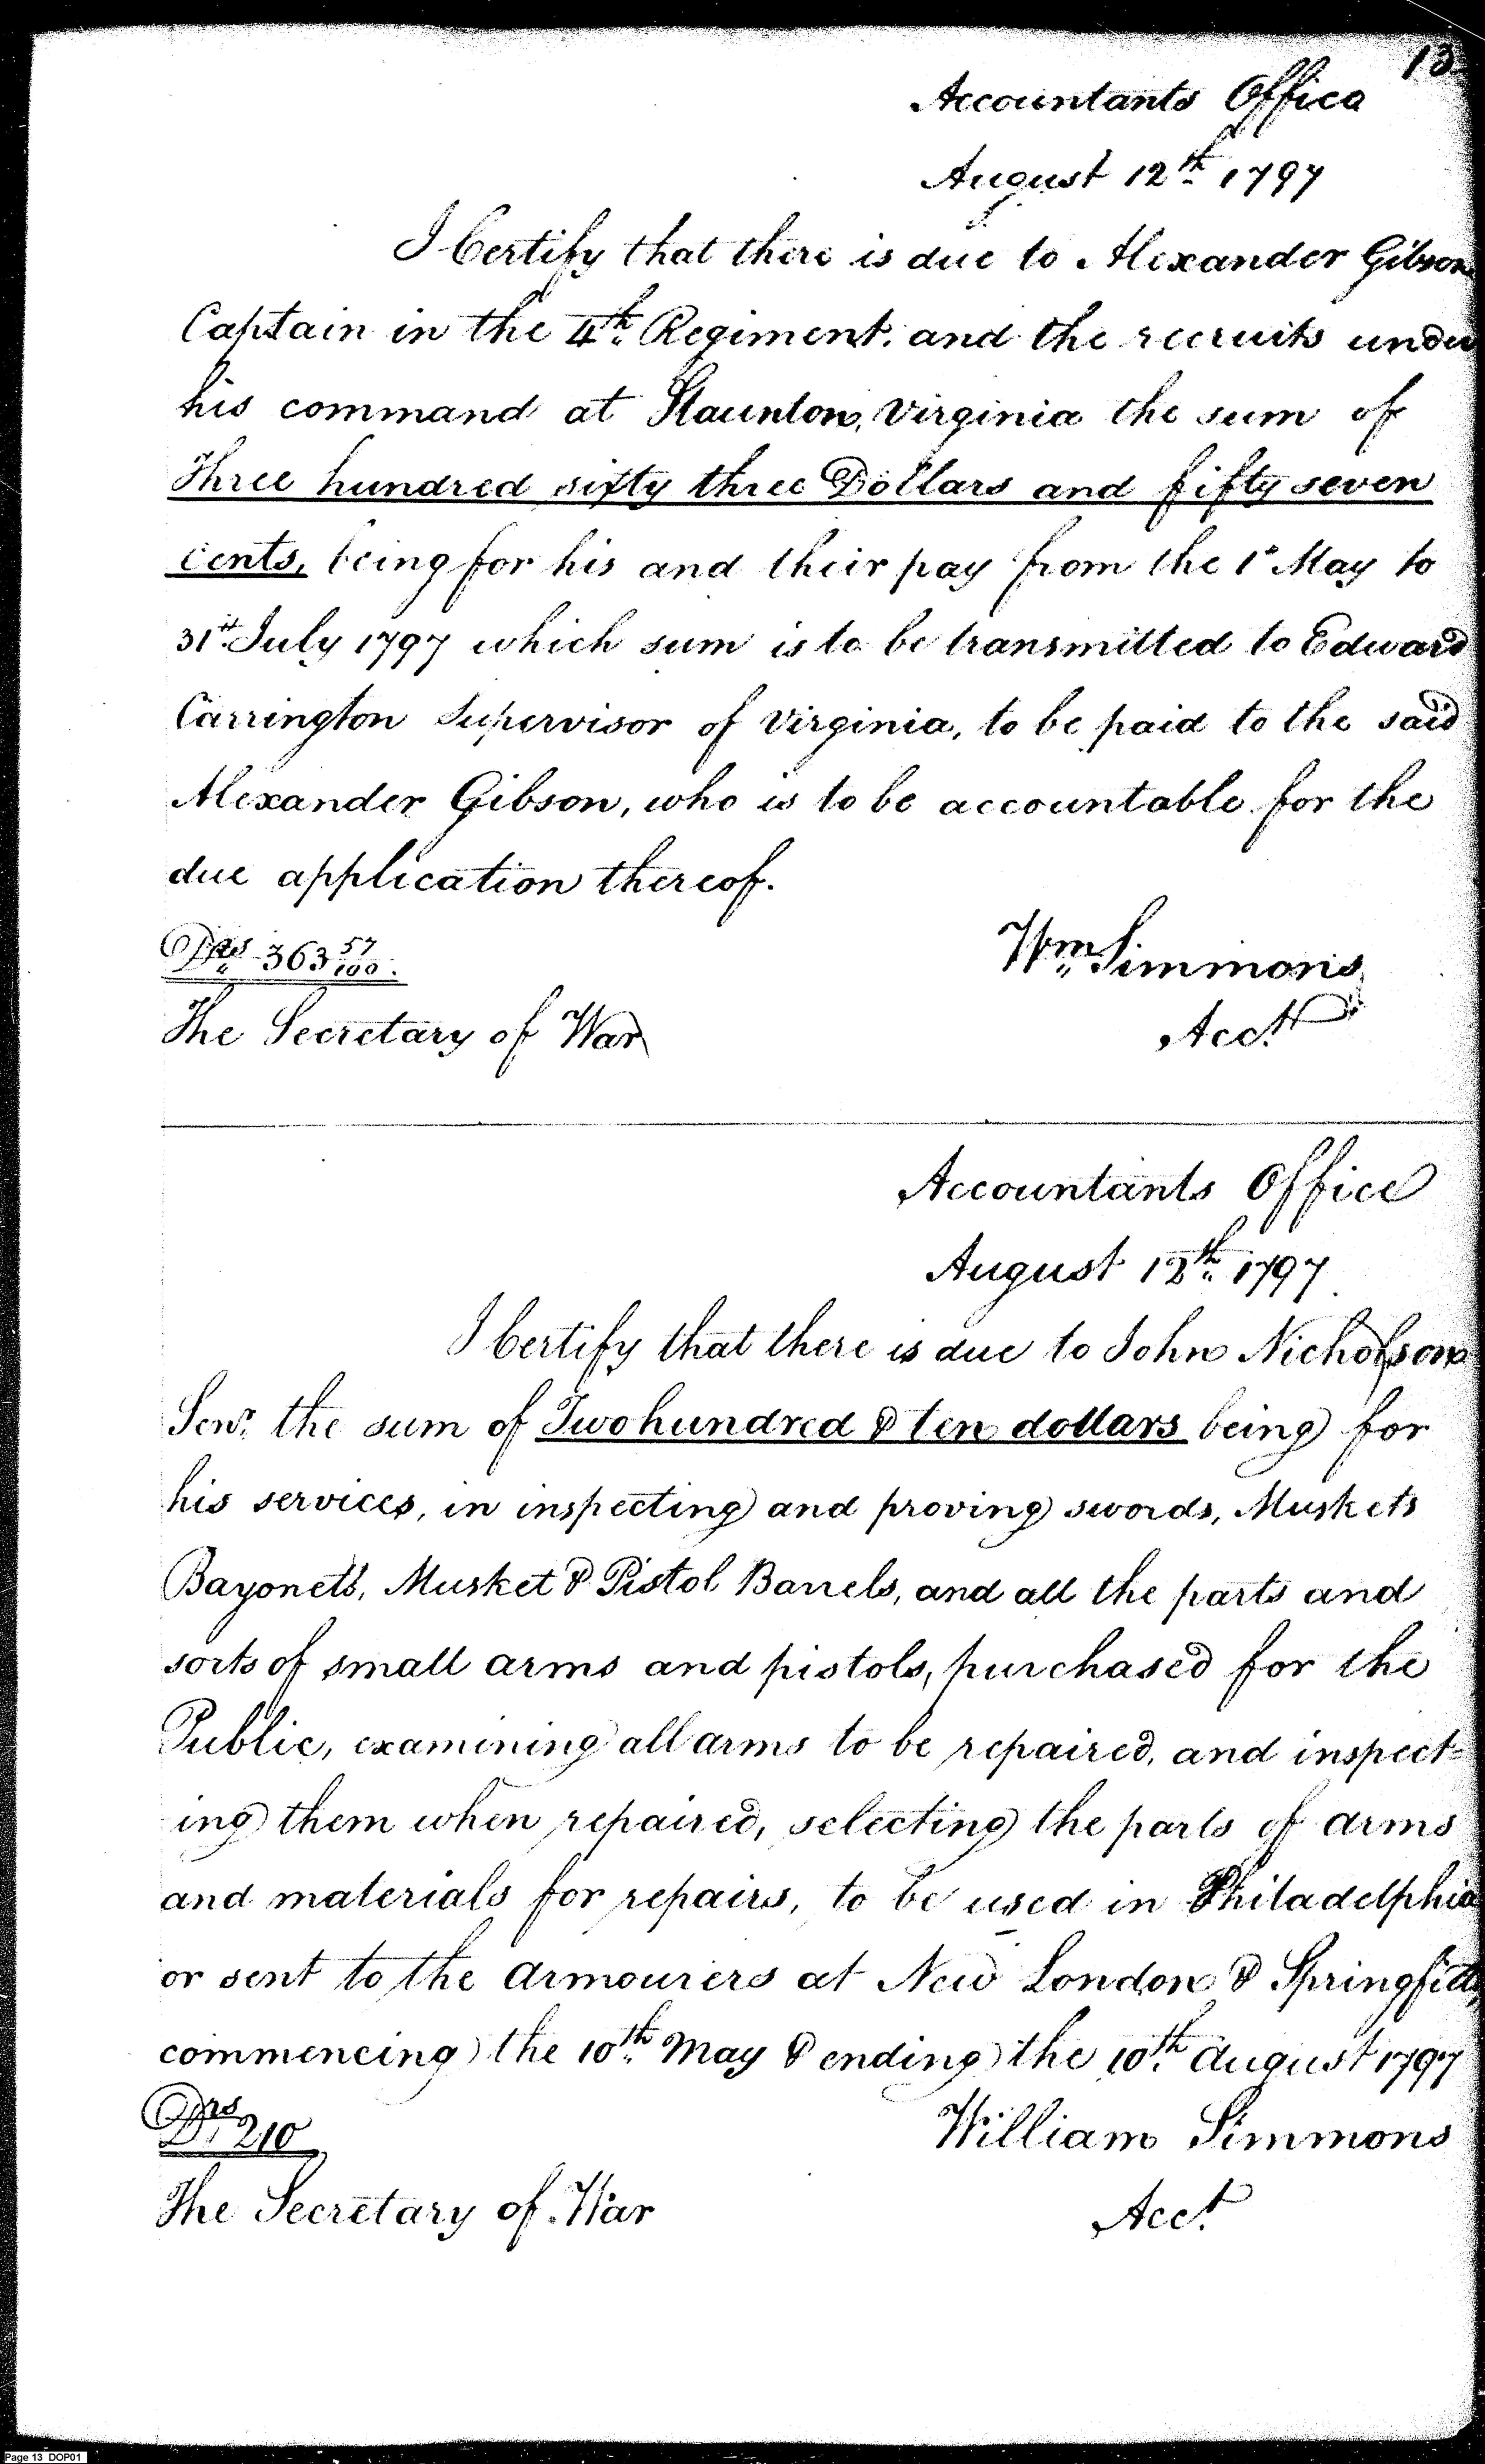 13
Accountants Office
August 12th 1797
I Certify that there is due to Alexander Gibson
Captain in the 4th Regiment. and the recruits under
his command at Staunton, Virginia the sum of
Three hundred sixty three Dollars and fifty seven
cents, being for his and their pay from the 1st May to
31st July 1797 which sum is to be transmitted to Edward
Carrington Supervisor of Virginia, to be paid to the said
Alexander Gibson, who is to be accountable for the
due application thereof.
Drs 363 57/100.
Wm Simmons
The Secretary of War
Acct
Accountants Office
August 12th 1797
I Certify that there is due to John Nicholson
Senr. the sum of Two hundred & ten dollars being for
his services, in inspecting and proving swords, Muskets
Bayonets, Musket & Pistol Barrels, and all the parts and
sorts of small arms and pistols, purchased for the
Public, examining all arms to be repaired, and inspect=
ing them when repaired, selecting the parts of arms
and materials for repairs, to be used in Philadelphia
or sent to the Armourers at New London & Springfield,
commencing the 10th May & ending the 10th August 1797
Drs 210
William Simmons
The Secretary of War
Acct.
Page 13 DOP01